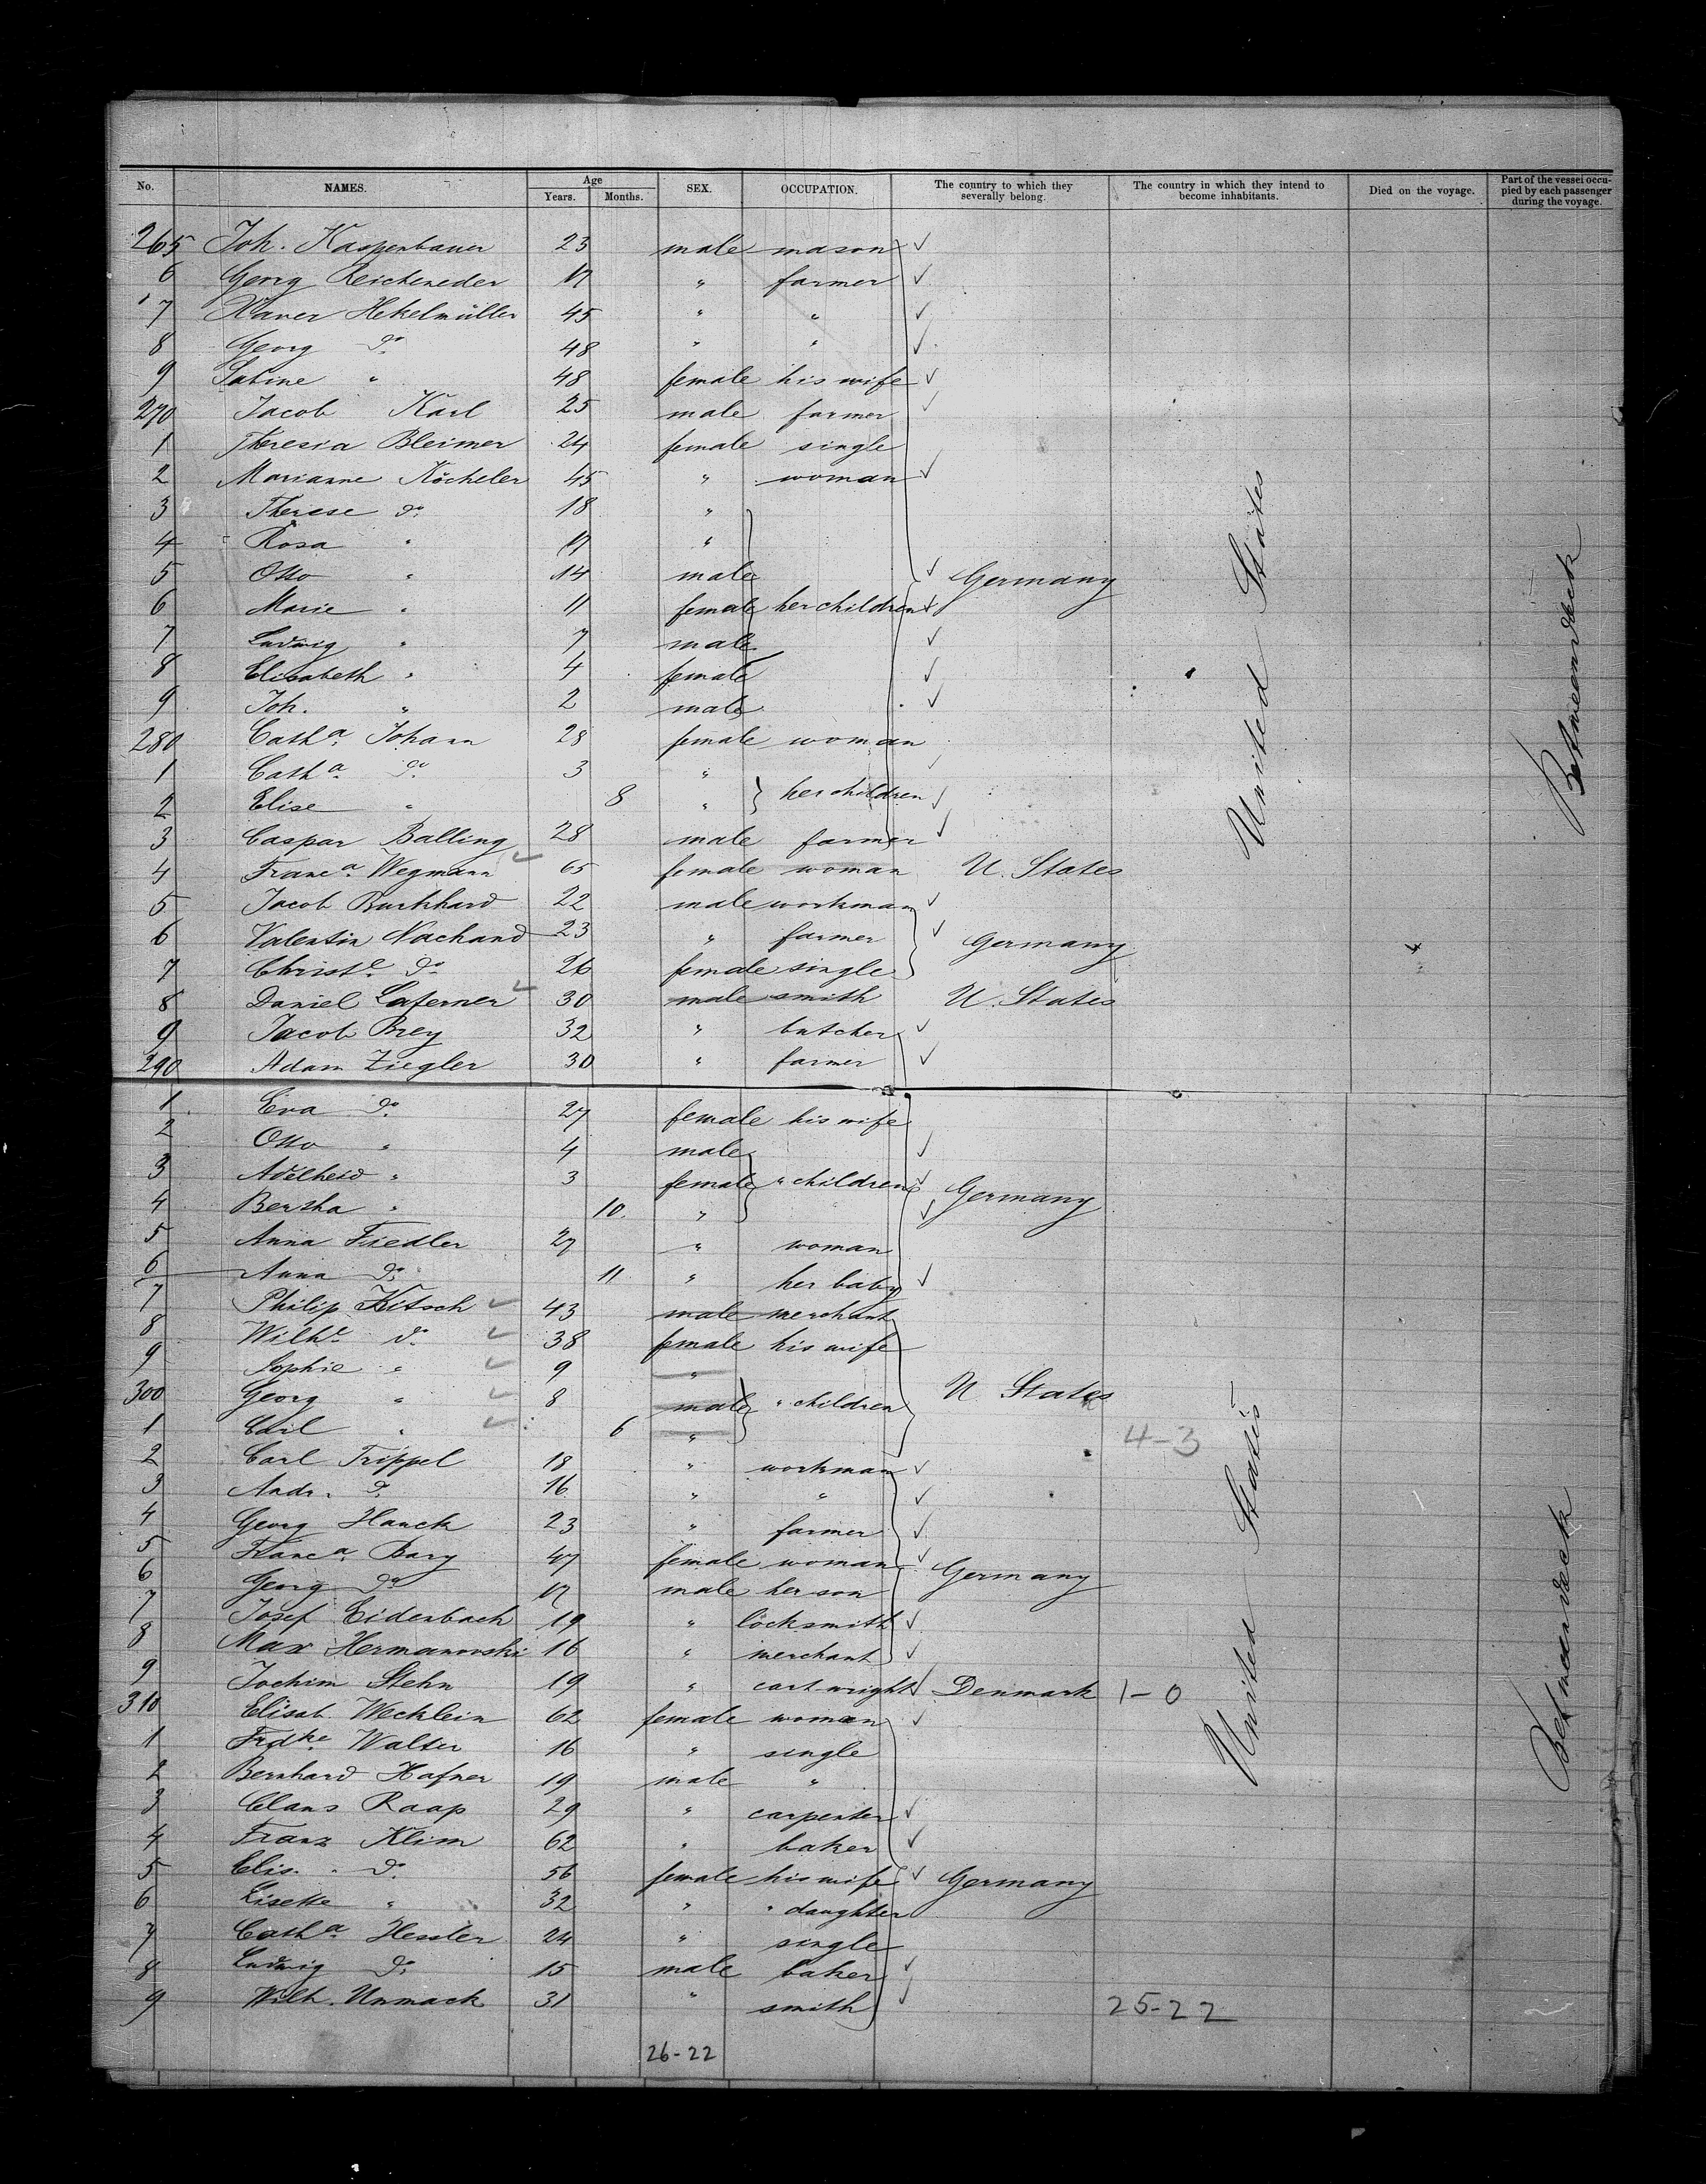 No. NAMES. Age Years. Months. SEX. OCCUPATION. The country to which they severally belong. The country in which they intend to become inhabitants. Died on the voyage. Part of the vessel occupied by each passenger during the voyage.
265 Joh. Kaspenbauer 23 male mason
6 Georg Reicheneder 17 " farmer
7 Xaver Hekelmüller 45 " "
8 Georg do 48 " "
9 Sabine " 48 female his wife
270 Jacob Karl 25 male farmer
1 Theresia Bleimer 24 female single
2 Marianne Köcheler 45 " woman
3 Therese do 18 "
4 Rosa " 17 "
5 Otto " 14 male Germany
6 Marie " 11 female her children
7 Ludwig " 7 male
8 Elisabeth " 4 female
9 Joh. " 2 male
280 Catha Johann 28 female woman
1 Catha do 3 "
2 Elise " 8 " her children
3 Caspar Balling 28 male farmer
4 Franca Wegmann 65 female woman U. States
5 Jacob Burkhard 22 male workman
6 Valentin Nachand 23 " farmer Germany
7 Christe do 26 female single
8 Daniel Laferner 30 male smith U. States
9 Jacob Brey 32 " butcher
290 Adam Ziegler 30 " farmer
United States
Betweendeck
1 Eva do 27 female his wife
2 Otto " 4 male
3 Adelheid " 3 female " children Germany
4 Bertha " 10 "
5 Anna Fiedler 27 " woman
6 Anna do 11 " her baby
7 Philip Kitsch 43 male merchant
8 Wilhe do 38 female his wife
9 Sophie " 9 "
300 Georg " 8 male " children U. States
1 Carl " 6 " 4-3
2 Carl Trippel 18 " workman
3 Andr. do 16 " "
4 Georg Hauck 23 " farmer
5 Franca Bary 47 female woman Germany
6 Georg do 17 male her son
7 Josef Eidenbach 19 " locksmith
8 Max Hermanovski 16 " merchant
9 Jochim Stehn 19 " cartwright Denmark 1-0
310 Elisab. Wecklein 62 female woman
1 Frdke Walter 16 " single
2 Bernhard Hafner 19 male "
3 Claus Raap 29 " carpenter
4 Franz Klim 62 " baker
5 Elis. do 56 female his wife Germany
6 Lisette " 32 " " daughter
7 Catha Hessler 24 " single
8 Ludwig do 15 male baker
9 Wilh. Unmack 31 " smith 25-22
United States
Betweendeck
26-22